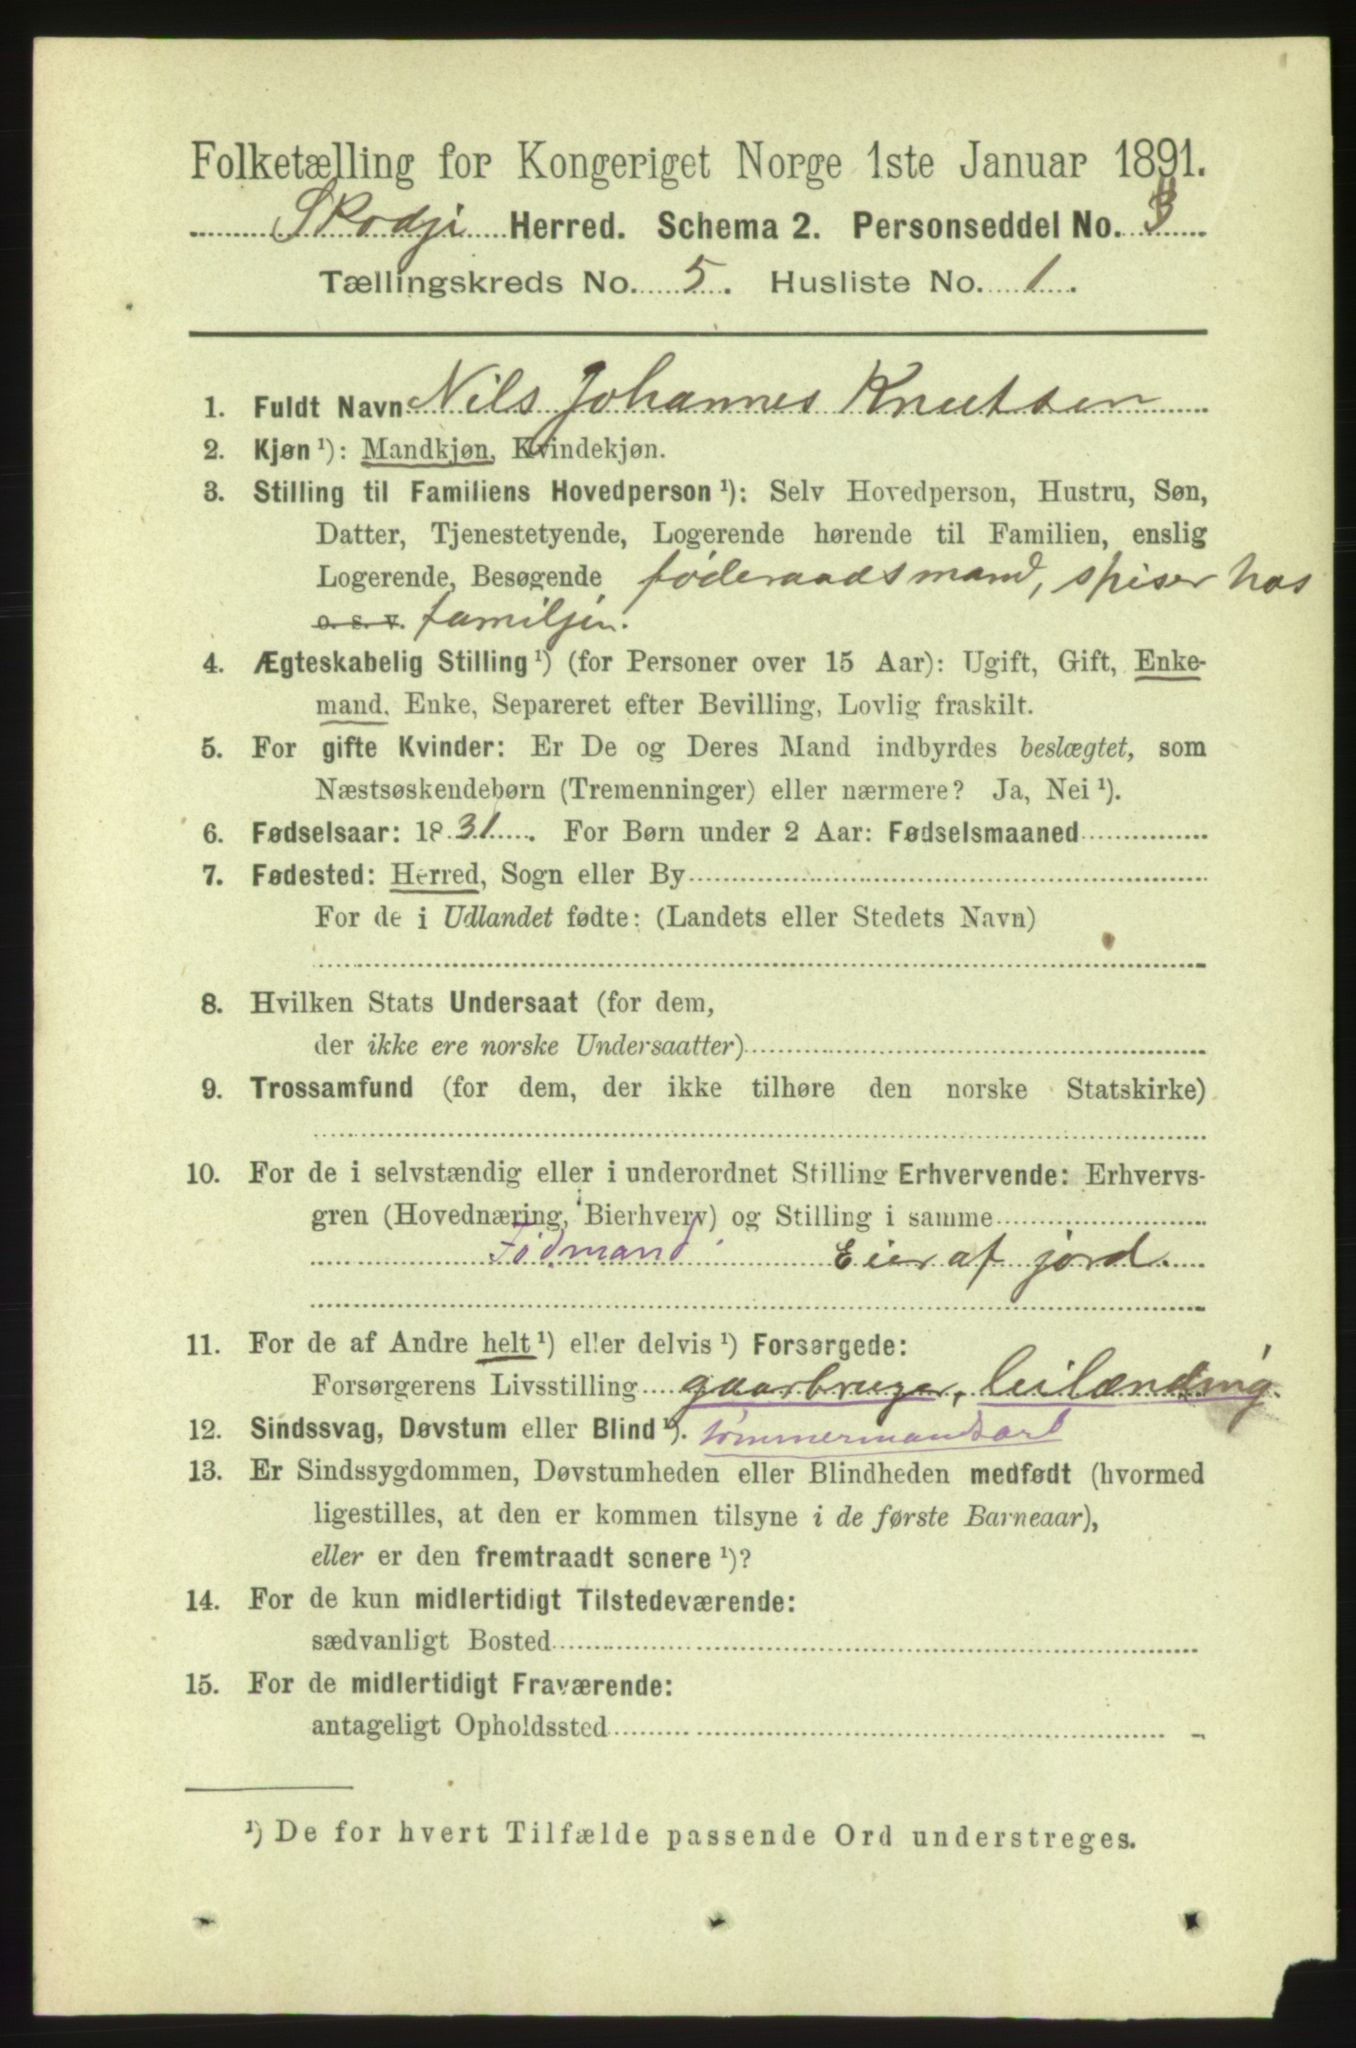 Folketælling for Kongeriget Norge 1ste Januar 1891.
Skodje Herred. Schema 2. Personseddel No. 3
Tællingskreds No. 5. Husliste No. 1.
1. Fuldt Navn Nils Johannes Knutsen
2. Kjøn ¹): Mandkjøn, Kvindekjøn.
3. Stilling til Familiens Hovedperson ¹): Selv Hovedperson, Hustru, Søn,
Datter, Tjenestetyende, Logerende hørende til Familien, enslig
Logerende, Besøgende føderaadsmand, spiser hos
o. s. v. familjen.
4. Ægteskabelig Stilling ¹) (for Personer over 15 Aar): Ugift, Gift, Enke-
mand, Enke, Separeret efter Bevilling, Lovlig fraskilt.
5. For gifte Kvinder: Er De og Deres Mand indbyrdes beslægtet, som
Næstsøskendebørn (Tremenninger) eller nærmere? Ja, Nei ¹).
6. Fødselsaar: 1831. For Børn under 2 Aar: Fødselsmaaned
7. Fødested: Herred, Sogn eller By
For de i Udlandet fødte: (Landets eller Stedets Navn)
8. Hvilken Stats Undersaat (for dem,
der ikke ere norske Undersaatter)
9. Trossamfund (for dem, der ikke tilhøre den norske Statskirke)
10. For de i selvstændig eller i underordnet Stilling Erhvervende: Erhvervs-
gren (Hovednæring, Bierhverv) og Stilling i samme
Fødmand. Eier af jord.
11. For de af Andre helt ¹) eller delvis ¹) Forsørgede:
Forsørgerens Livsstilling gaarbruger, leilænding.
12. Sindssvag, Døvstum eller Blind ¹). tømmermandsarb
13. Er Sindssygdommen, Døvstumheden eller Blindheden medfødt (hvormed
ligestilles, at den er kommen tilsyne i de første Barneaar),
eller er den fremtraadt senere ¹)?
14. For de kun midlertidigt Tilstedeværende:
sædvanligt Bosted
15. For de midlertidigt Fraværende:
antageligt Opholdssted
¹) De for hvert Tilfælde passende Ord understreges.